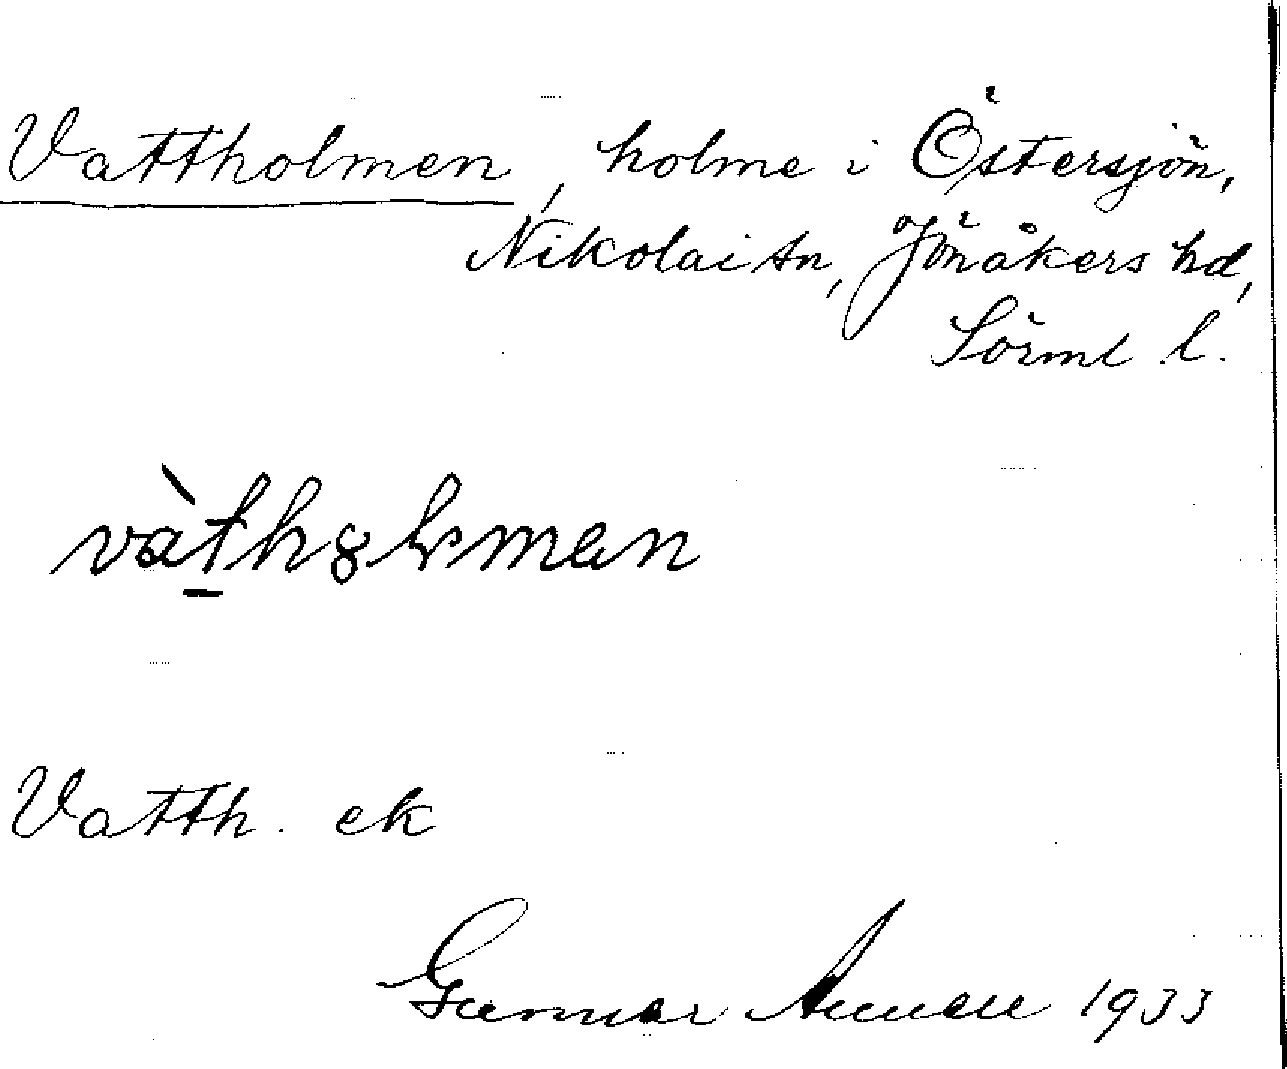 Vattholmen, holme i Östersjön,
Nikolai sn, Jönåkers hd,
Sörml l.
vàthȣlmen
Vatth. ek
Gunnar 1933